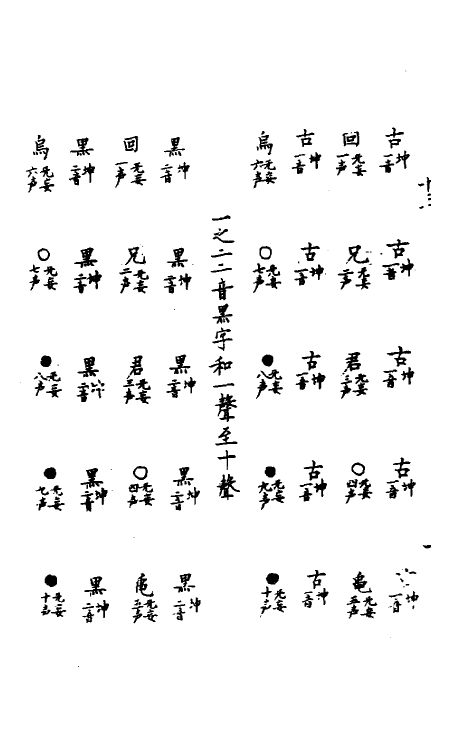 古坤一音 古坤一音 古坤一音 古坤一音 坤一音
回无妄一声 兄无妄二声 君无妄三声 ○无妄四声 龜无妄五声
古坤一音 古坤一音 古坤一音 古坤一音 古坤一音
烏无妄六声 ○无妄七声 ●无妄八声 ●无妄九声 ●无妄十声
一之二二音黑字和一聲至十聲
黑坤二音 黑坤二音 黑坤二音 黑坤二音 黑坤二音
回无妄一声 兄无妄二声 君无妄三声 ○无妄四声 龜无妄五声
黑坤二音 黑坤二音 黑坤二音 黑坤二音 黑坤二音
烏无妄六声 ○无妄七声 ●无妄八声 ●无妄七声 ●无妄十声